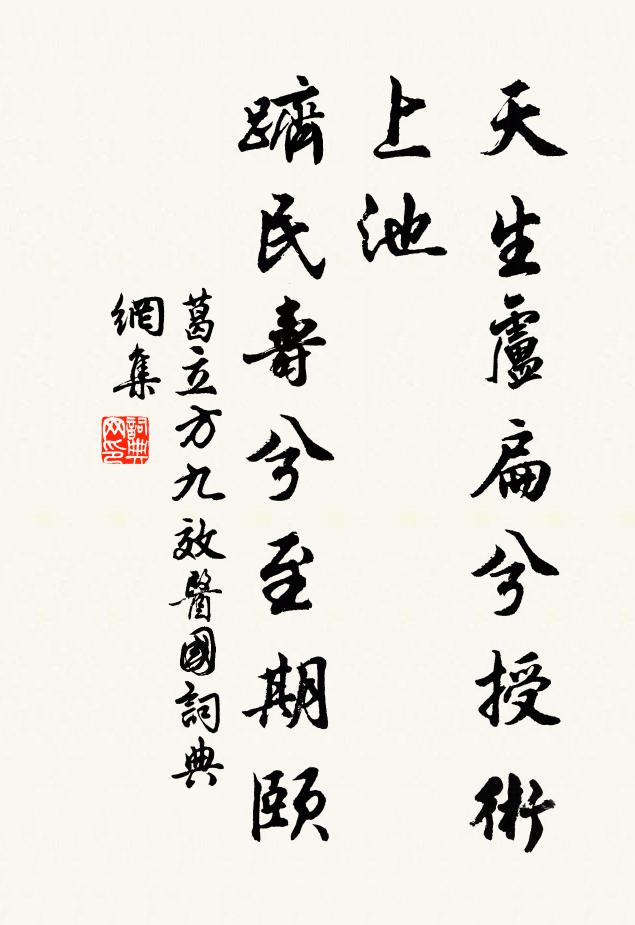 天生盧扁兮授術
上池
躋民壽兮至期頤
葛立方九效醫國詞典
網集
詞典
网印